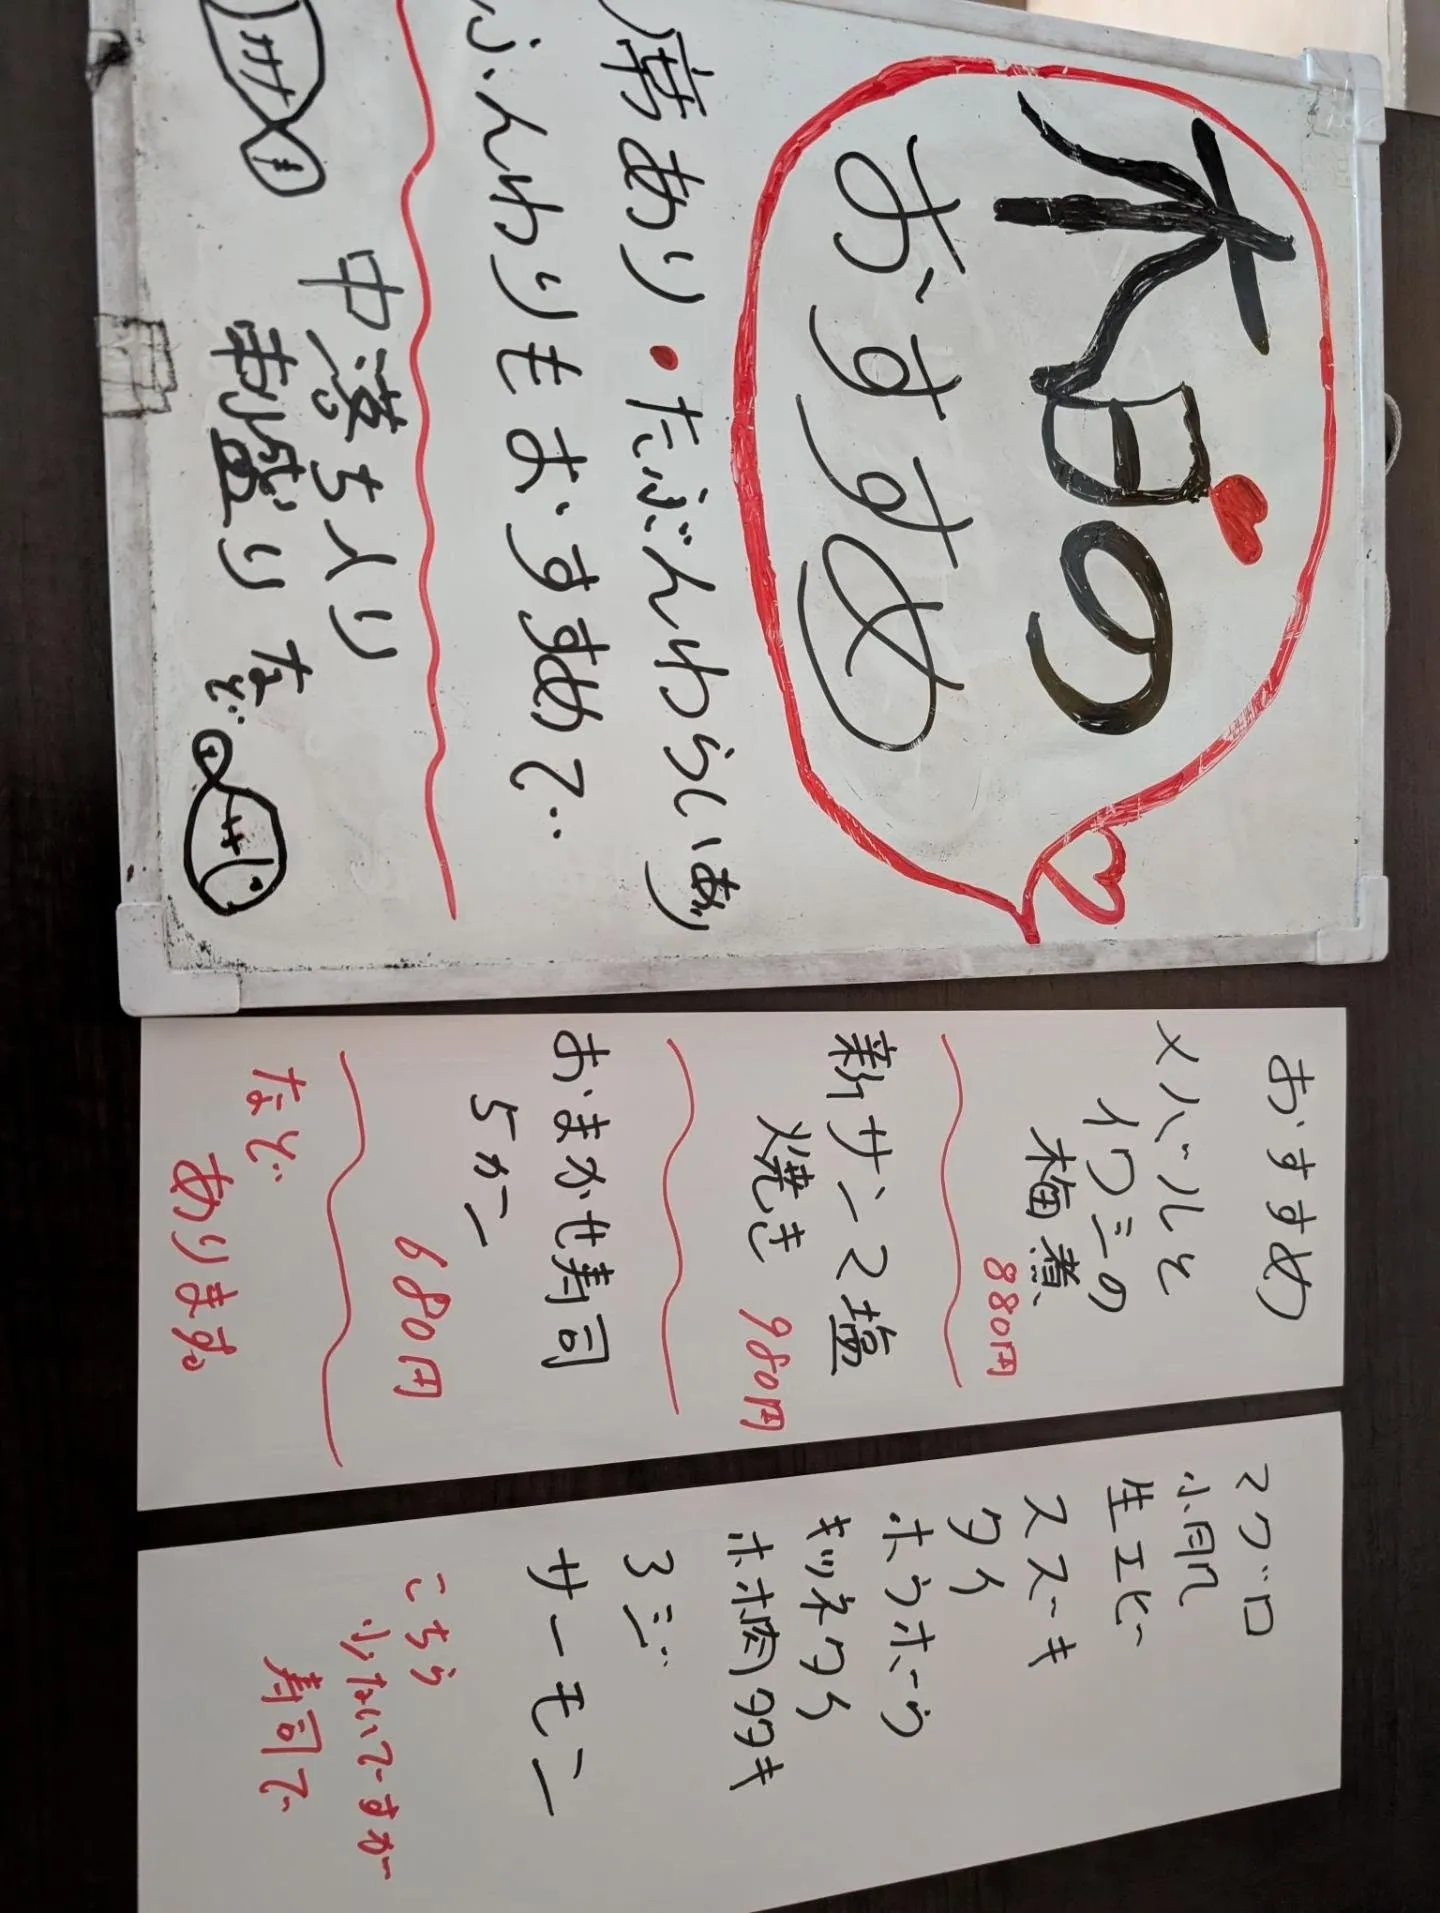 本日の
おすすめ
席あり・たぶんわらい(あり)
ふんわりもおすすめで
中落ち入り
刺盛りなど
おすすめ
メバルと
イワシの
梅煮
880円
新サンマ塩
焼き 980円
おまかせ寿司
5カン
680円
など
あります。
マグロ
小肌
生エビ
スズキ
タイ
ホウボウ
キツネタイ
ホホ肉タタキ
アジ
サーモン
こちら
少ないですが
寿司で